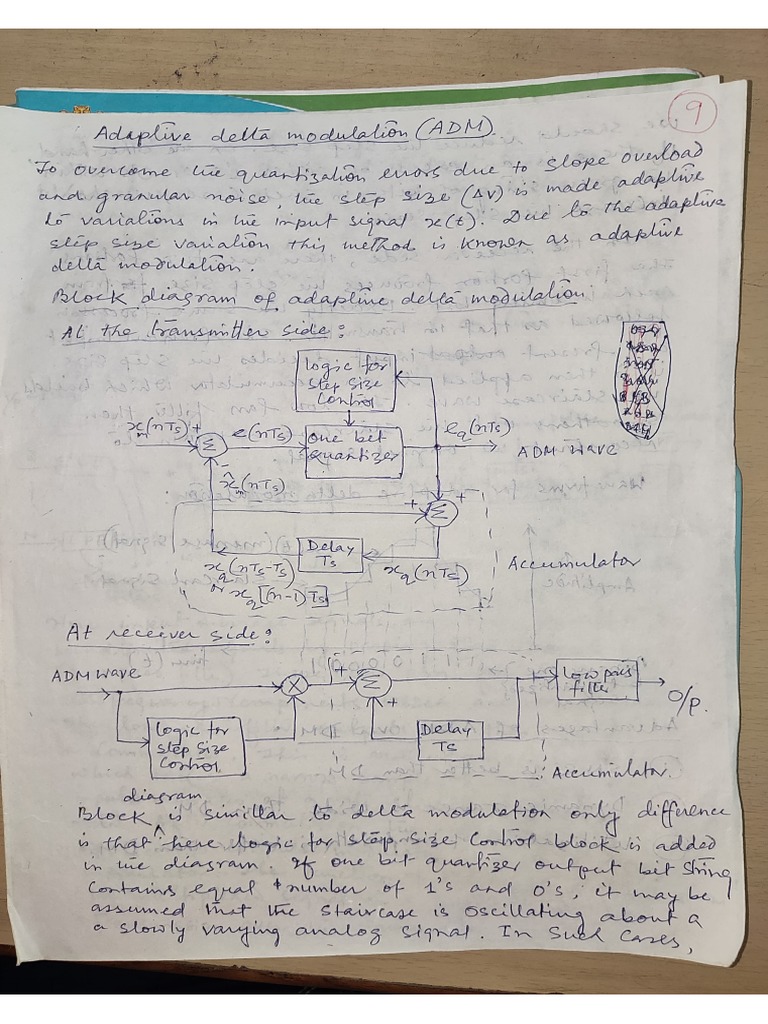 9
Adaptive delta modulation (ADM).
To overcome the quantization errors due to slope overload
and granular noise, the step size (ΔV) is made adaptive
to variations in the input signal x(t). Due to the adaptive
step size variation this method is known as adaptive
delta modulation.
Block diagram of adaptive delta modulation
At the transmitter side:
logic for
step size
Control
x_m(nTs) +
Σ
e(nTs)
One bit
quantizer
e_q(nTs)
ADM wave
-
x̂_m(nTs)
+
+
Σ
Delay
Ts
x_q(nTs-Ts)
or x_q[(n-1)Ts]
x_q(nTs)
Accumulator
At receiver side:
ADM wave
×
+
Σ
+
Low pass
filter
O/P.
Logic for
step size
Control
Delay
Ts
Accumulator
diagram
Block ^ is simillar to delta modulation only difference
is that here logic for step size Control block is added
in the diagram. If one bit quantizer output bit string
Contains equal number of 1's and 0's, it may be
assumed that the staircase is oscillating about a
a slowly varying analog signal. In such cases,